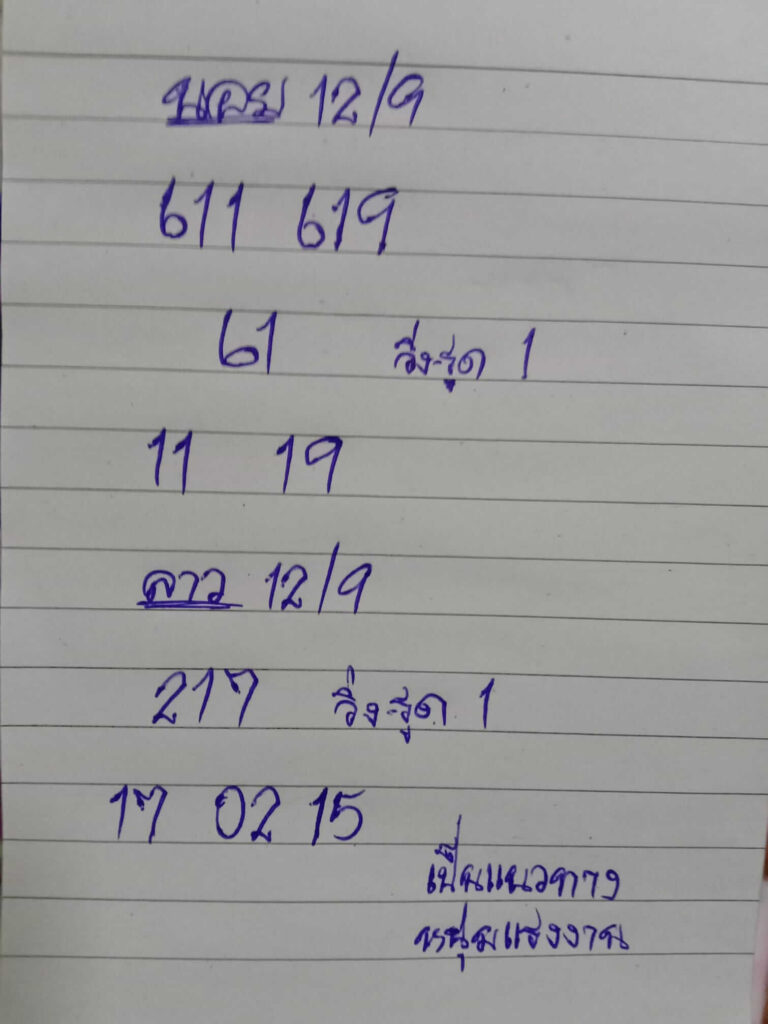 นอย 12/9
611 619
61 วิ่ง-รูด 1
11 19
ลาว 12/9
217 วิ่ง-รูด 1
17 02 15
เป็นแนวทาง
หนุ่มแรงงาน